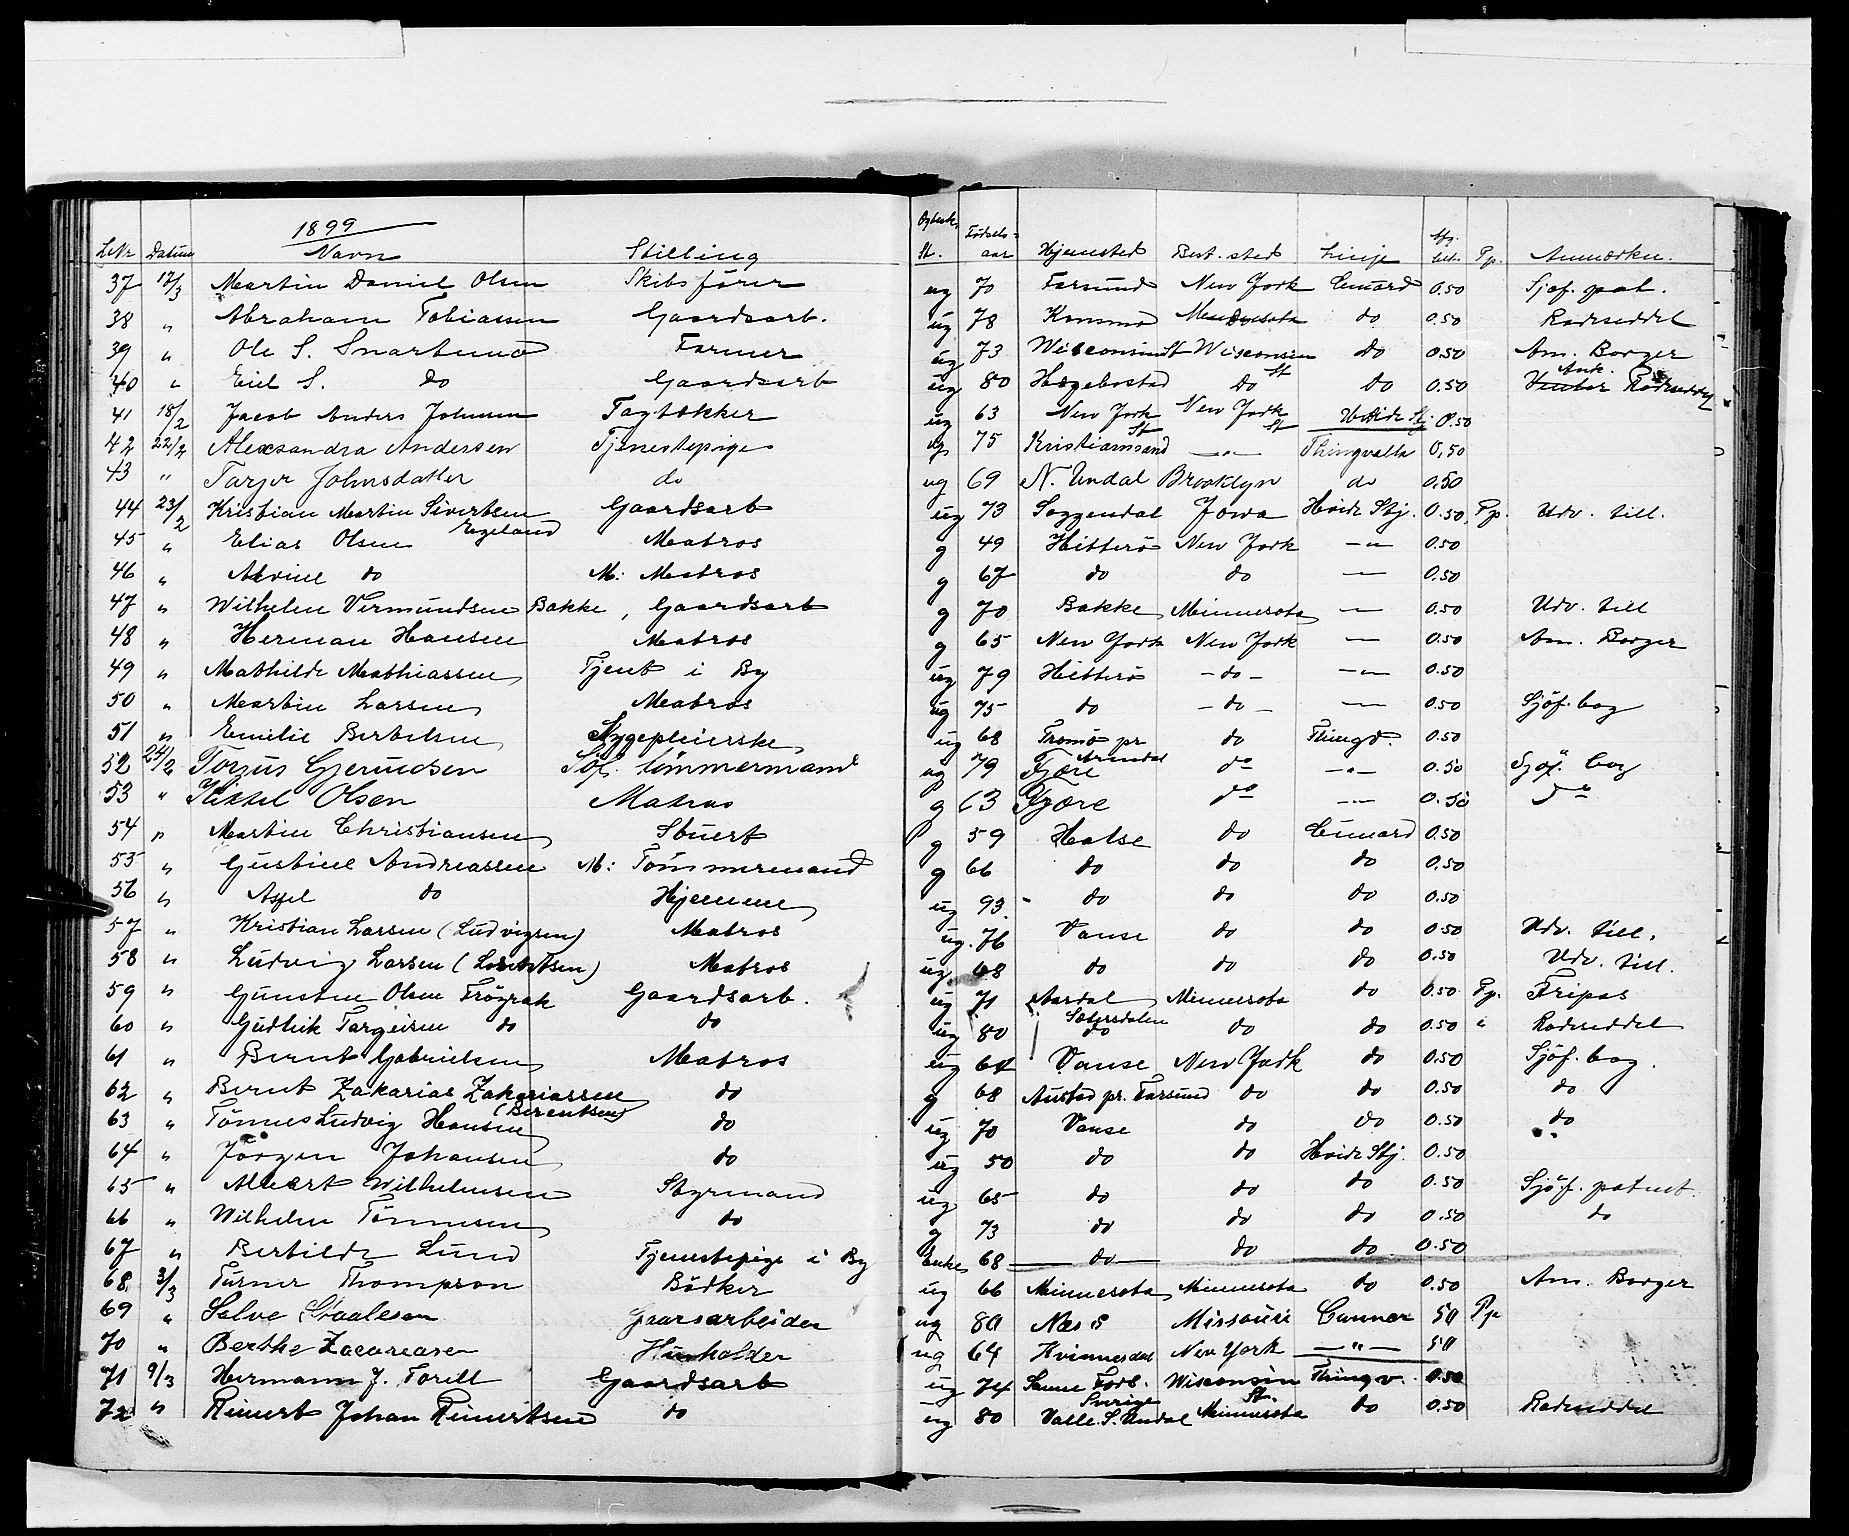 1899
LNr Datum Navn Stilling St. Fødselsaar Hjemsted Best. sted Linje Pp. Anmærkn.
37 12/3 Martin Daniel Olsen Skibsfører ug 70 Farsund New York Cunard 0.50 Sjøf. pat.
38 " Abraham Tobiassen Gaardsarb. ug 78 Minnesota do 0.50 Rodeseddel
39 " Ole S. Snartemo Farmer ug 73 Wisconsin St Wisconsin do 0.50 Am. Borger
40 " Emil S. do Gaardsarb ug 80 Hægebostad do St do 0.50 Rodeseddel
41 18/2 Jacob Anders Johnsen Tagtækker ug 63 New York St New York St Hvide Stj 0.50
42 22/2 Alexsandra Andersen Tjenestepige ug 75 Kristianssand —"— Thingvalla 0,50
43 " Targer Johnsdatter do ug 69 N. Undal Brooklyn do 0.50
44 23/2 Kristian Martin Sivertsen Egeland Gaardsarb ug 73 Soggendal Jowa Hvide Stj. 0.50 Pp. Udv. till.
45 " Elias Olsen Matros g 49 Hitterø New York —"— 0.50
46 " Alvine do M: Matros g 67 do do — 0.50
47 " Wilhelm Vermundsen Bakke, Gaardsarb g 70 Bakke Minnesota — 0.50 Udv. till
48 " Herman Hansen Matros g 65 New York New York — 0.50 Am. Borger
49 " Mathilde Mathiassen Tjent i By ug 79 Hitterø — do — —"— 0.50
50 " Martin Larsen Matros ug 75 do — do — — 0.50 Sjöf. bog
51 " Emilie Bertelsen Sygepleierske ug 68 Tromø pr Arendal do Thingv. 0.50
52 24/2 Torjus Gjerudsen Søf. tømmermand ug 79 Fjære do —"— 0.50 Sjøf. bog
53 " Kittel Olsen Matros g 63 Fjære do —"— 0.50 do
54 " Martin Christiansen Stuert g 59 Halse do Cunard 0.50
55 " Gustine Andreassen M: Tømmermand g 66 do do do 0.50
56 " Axel do Hjemme ug 93 do do do 0.50
57 " Kristian Larsen (Ludvigsen) Matros ug. 76 Vanse do do 0.50 Udv. till.
58 " Ludvig Larsen Matros ug 68 do do do 0.50 Udv. till.
59 " Gunsten Olsen Frøyrak Gaardsarb. ug 71 Aardal Sætersdalen Minnesota do 0.50 Pp. Fripas
60 " Gudleik Targeirsen do do ug 80 do do do 0.50 " Rodeseddel
61 " Bernt Gabrielsen Matros ug 64 Vanse New York do 0.50 Sjöf. bog.
62 " Bernt Zakarias Zakariassen (Berentsen) do g 68 Austad pr. Farsund do do 0.50 do
63 " Tønnes Ludvig Hansen do ug 70 Vanse do do 0.50 do
64 " Jørgen Johansen do ug 50 do do Hvide Stj. 0.50
65 " Albert Wilhelmsen Styrmand ug 65 do do do 0.50 Sjöf. patent.
66 " Wilhelm Tønnesen do g 73 do do do 0.50 do
67 " Bertilde Lund Tjenestepige i By Enke 68 — do — do do 0.50
68 3/3 Turner Thompson Bødker ug 66 Minnesota Minnesota do 0.50 Am. Borger
69 " Salve Staalesen Gaarsarbeider ug 80 Næs Missouri Cunnar 50 Pp
70 " Berthe Zacareasen Husholder ug 64 Kvinnesdal New York —"— 50
71 9/3 Hermann J. Torell Gaardsarb ug 74 Sverige Wisconsin St. Thingv. 0.50
72 " Reinert Johan Reinertsen do ug 80 Valle S. Undal Minnesota do 0.50 Rodeseddel